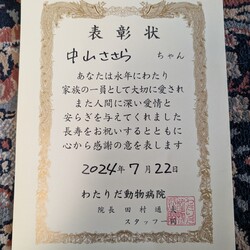 表彰状
中山ささら ちゃん
あなたは永年にわたり
家族の一員として大切に愛され
また人間に深い愛情と
安らぎを与えてくれました
長寿をお祝いするとともに
心から感謝の意を表します
2024年7月22日
わたりだ動物病院
院長 田村通
スタッフ一同